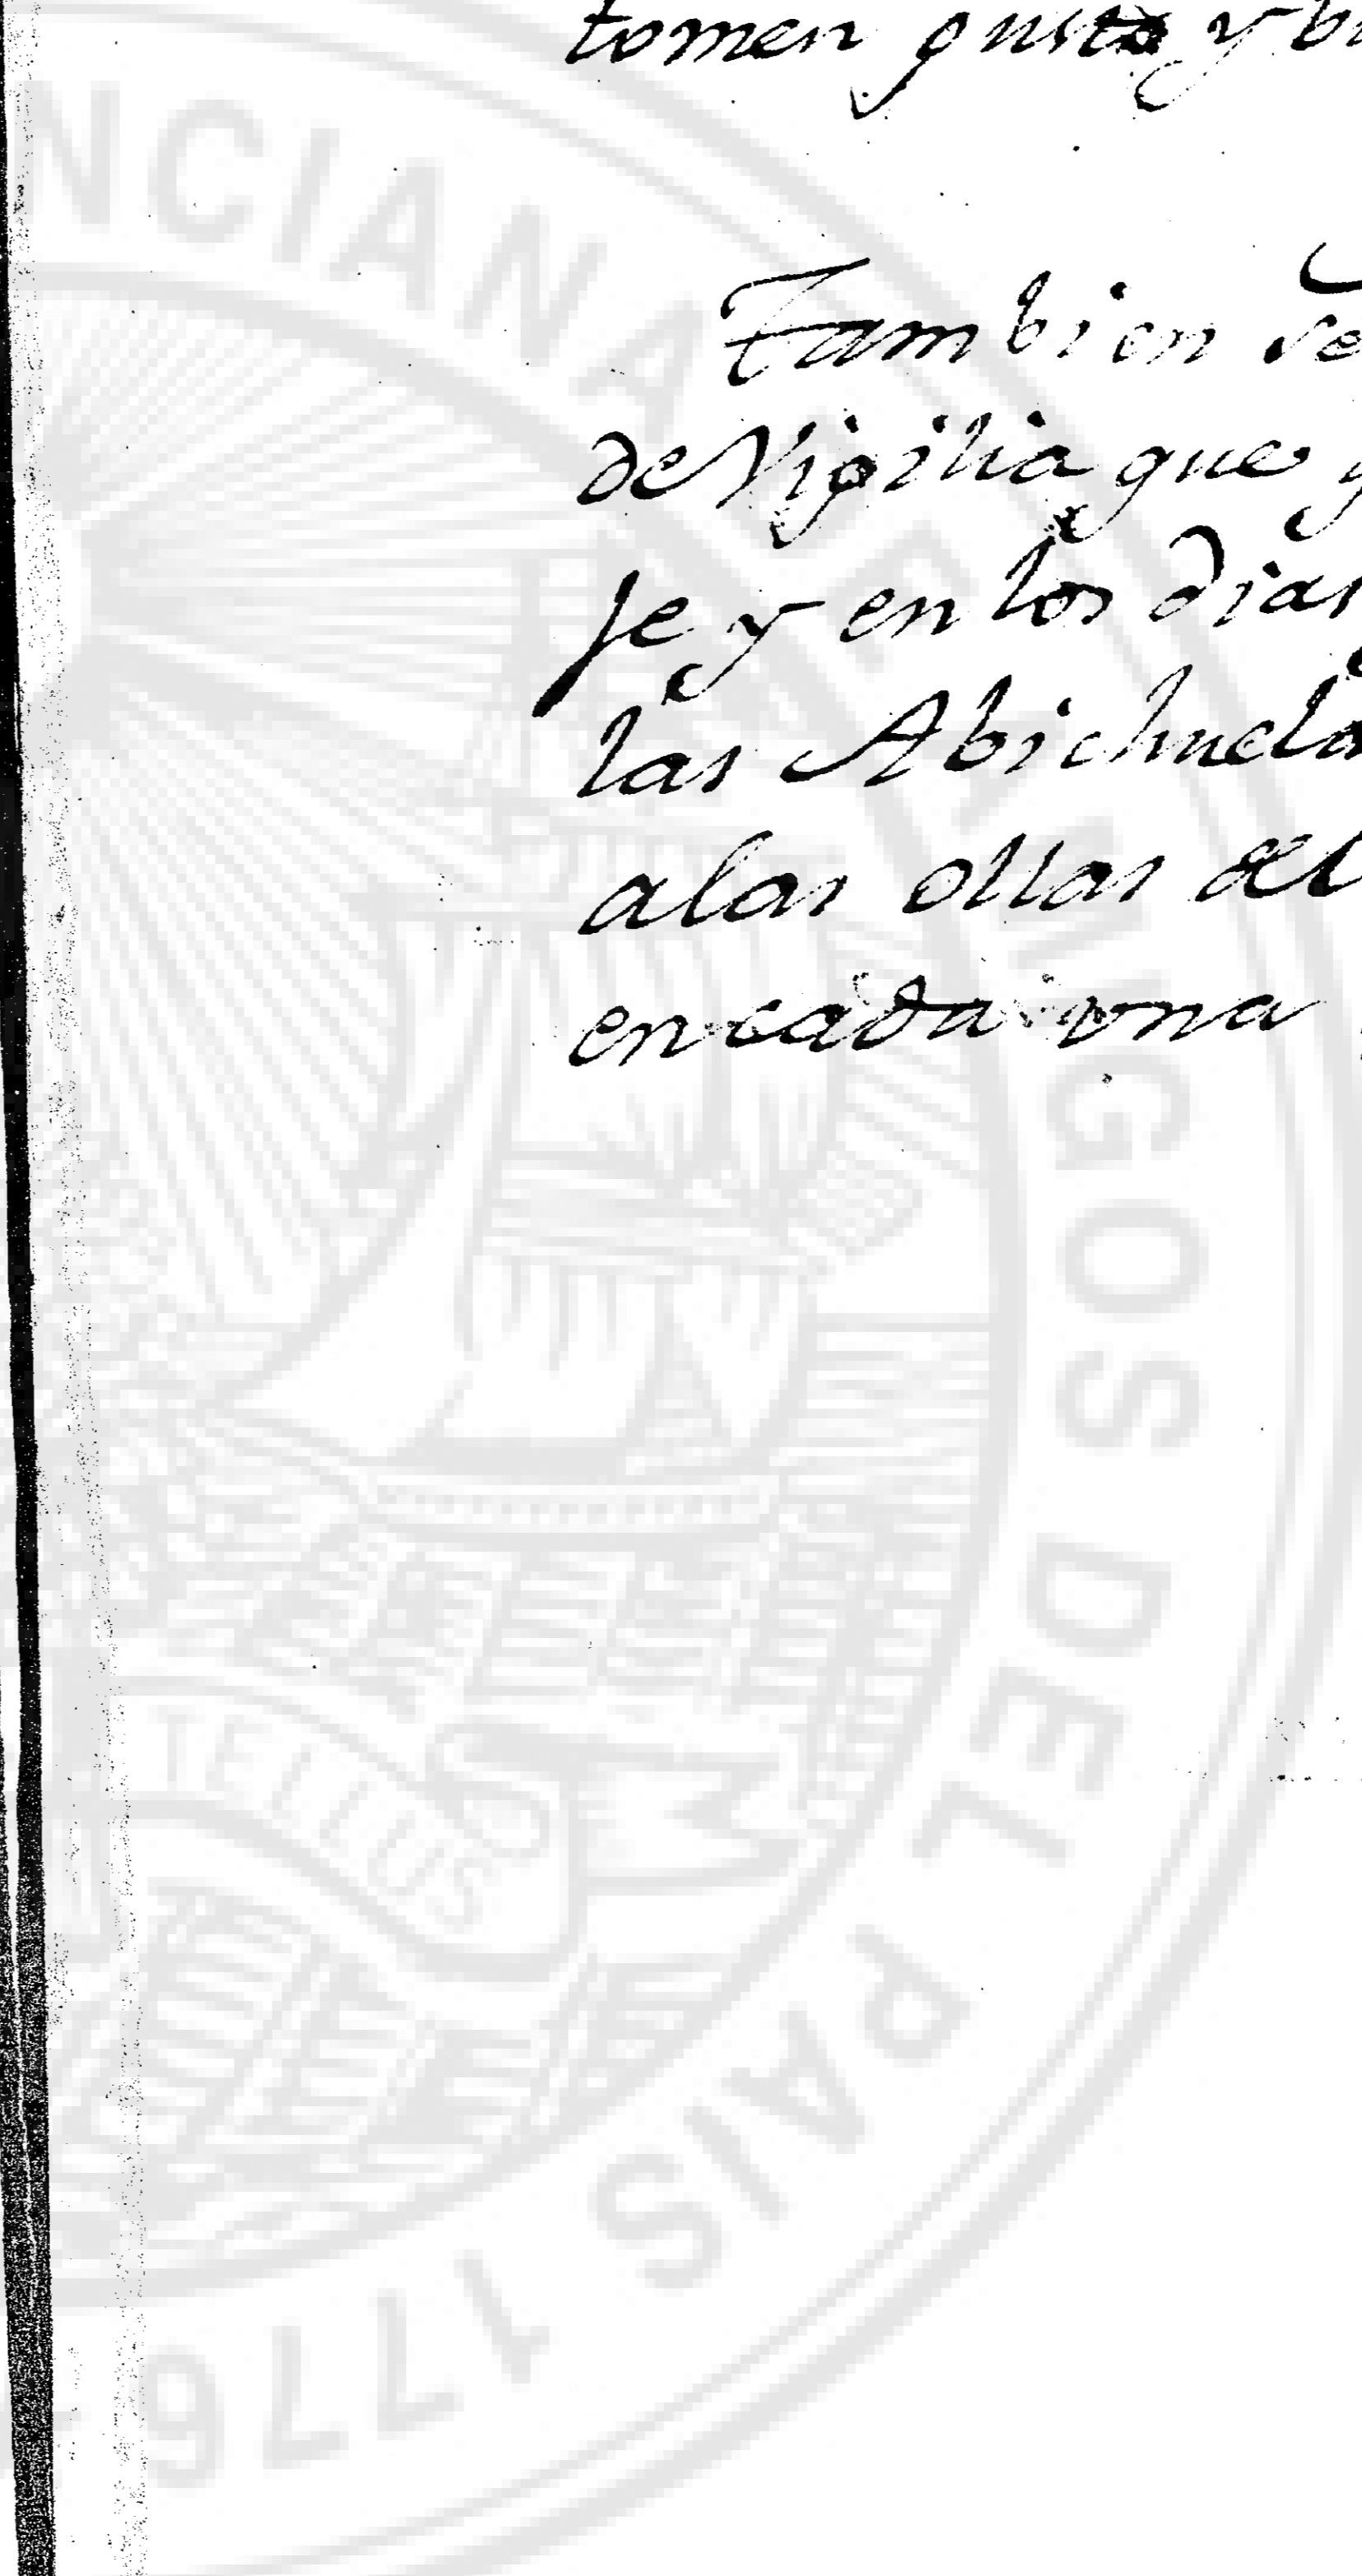 tomen gusto y bu
Tambien se
de Vigilia que y
Je y en los dias
las Abichuela
alas ollas del
encada una
NCIANA DE AMIGOS DEL PAIS 1776
TELLUS